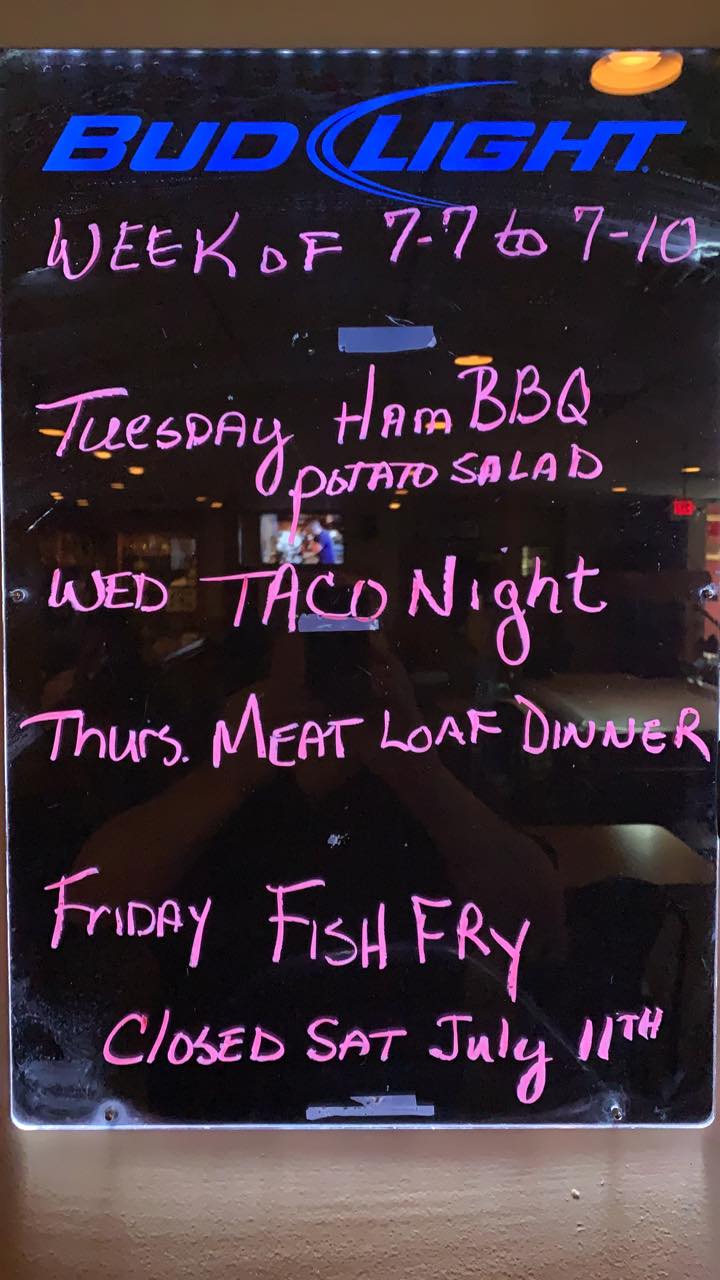 BUD LIGHT
WEEK OF 7-7 to 7-10
Tuesday Ham BBQ
POTATO SALAD
WED TACO Night
Thurs. MEAT LOAF DINNER
FRIDAY FISH FRY
CLOSED SAT July 11TH